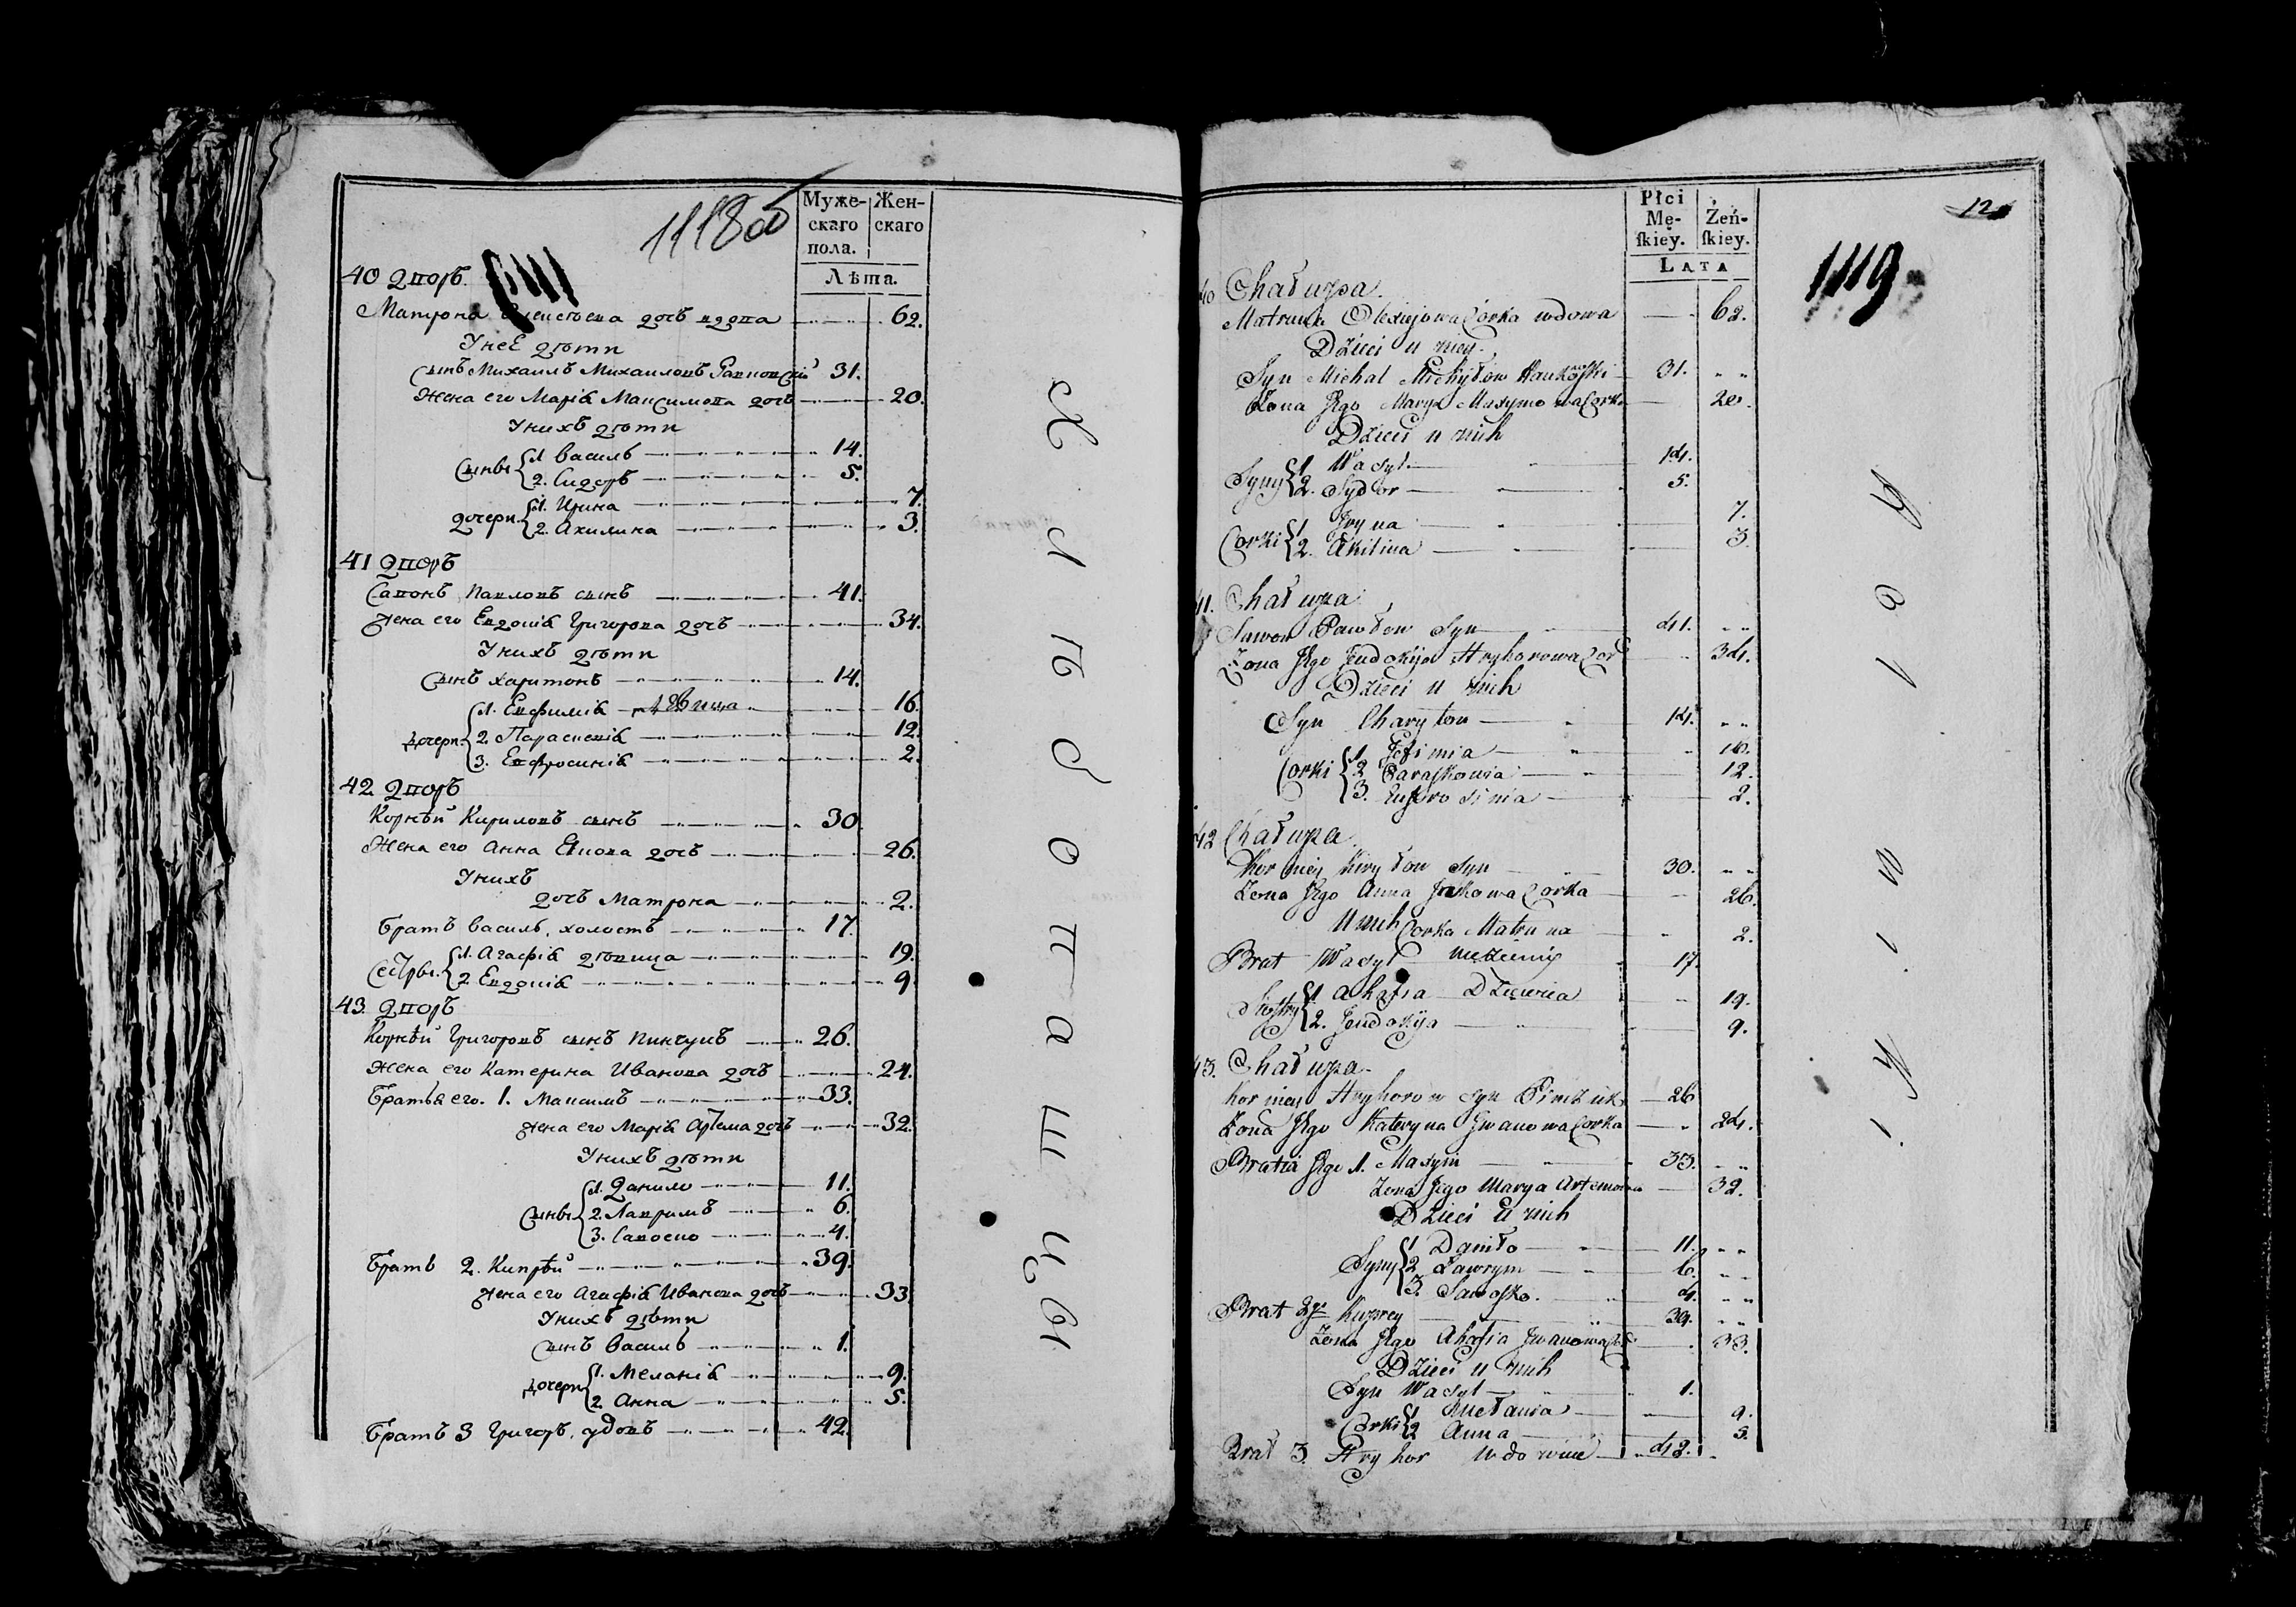 1118 об
Муже-
скаго
пола.
Жен-
скаго
Лѣта.
40 Дворъ.
Матрона дочь вдова 62.
У нее дѣти
сынъ Михаилъ Михаиловъ 31.
Жена его Марія Максимова дочь 20.
У нихъ дѣти
Сыны 1. Василь 14.
2. Сидоръ 5.
Дочери 1. Ирина 7.
2. Акилина 3.
41 Дворъ
Савонъ Павловъ сынъ 41.
Жена его Евдокія Григорова дочь 34.
У нихъ дѣти
сынъ Харитонъ 14.
Дочери 1. Евфимія дѣвица 16.
2. Параскевія 12.
3. Евфросинія 2.
42 Дворъ
Корнѣй Кириловъ сынъ 30.
Жена его Анна дочь 26.
У нихъ
дочь Матрона 2.
Братъ Василь, холостъ 17.
Сестры 1. Агафія дѣвица 19.
2. Евдокія 9.
43. Дворъ
Корнѣй Григоровъ сынъ Пинчукъ 26.
Жена его Катерина Иванова дочь 24.
Братья его. 1. Максимъ 33.
жена его Марія Артема дочь 32.
У нихъ дѣти
Сыны 1. Данило 11.
2. Лавримъ 6.
3. Савоско 4.
Братъ 2. Кипрѣй 39.
жена его Агафія Иванова дочь 33.
У нихъ дѣти
сынъ Василь 1.
дочери 1. Меланія 9.
2. Анна 5.
Братъ 3 Григоръ, удовъ 42.
Хлѣбопашцы
Płci
Mę-
ſkiey.
Żeń-
ſkiey.
LATA
12
1119
40 Chałupa.
Matruna Olexiejowa Corka wdowa 62.
Dzieci u niey.
Syn Michal Michyłow 31.
Żona Jego Marya Maxymowa Corka 20.
Dzieci u nich
Syny 1 Wasyl 14.
2. Sydor 5.
Corki 1 Jryna 7.
2. Akilina 3.
41. Chałupa
Sawon Pawłow Syn 41.
Żona Jego Jeudokija Hryhorowa Cor 34.
Dzieci u nich
Syn Charyton 14.
Corki 1. Jefimia 16.
2 Paraſkowia 12.
3. Eufrosinia 2.
42 Chałupa.
Korniey Kiryłow Syn 30.
Żona Jego Anna Jakowa Corka 26.
U nich Corka Matruna 2.
Brat Wasyl nieżenny 17.
Siostry 1 Ahafia Dziewica 19.
2. Jeudokija 9.
43. Chałupa.
Korniey Hryhorow Syn Pinczuk 26
Żona Jego Kateryna Jwanowa Corka 24.
Bratia Jego 1. Maxym 33.
Żona Jego Marya Artemowa 32.
Dzieci u nich
Syny 1 Daniło 11.
2 Ławrym 6.
3. Sawoſko. 4.
Brat 2gi Kuprey 39.
Żona Jego Ahafia Jwanowa Cor 33.
Dzieci u nich
Syn Wasyl 1.
Corki 1 Mełania 9.
2 Anna 5.
Brat 3. Hryhor Wdowiec 42.
Rolnik!